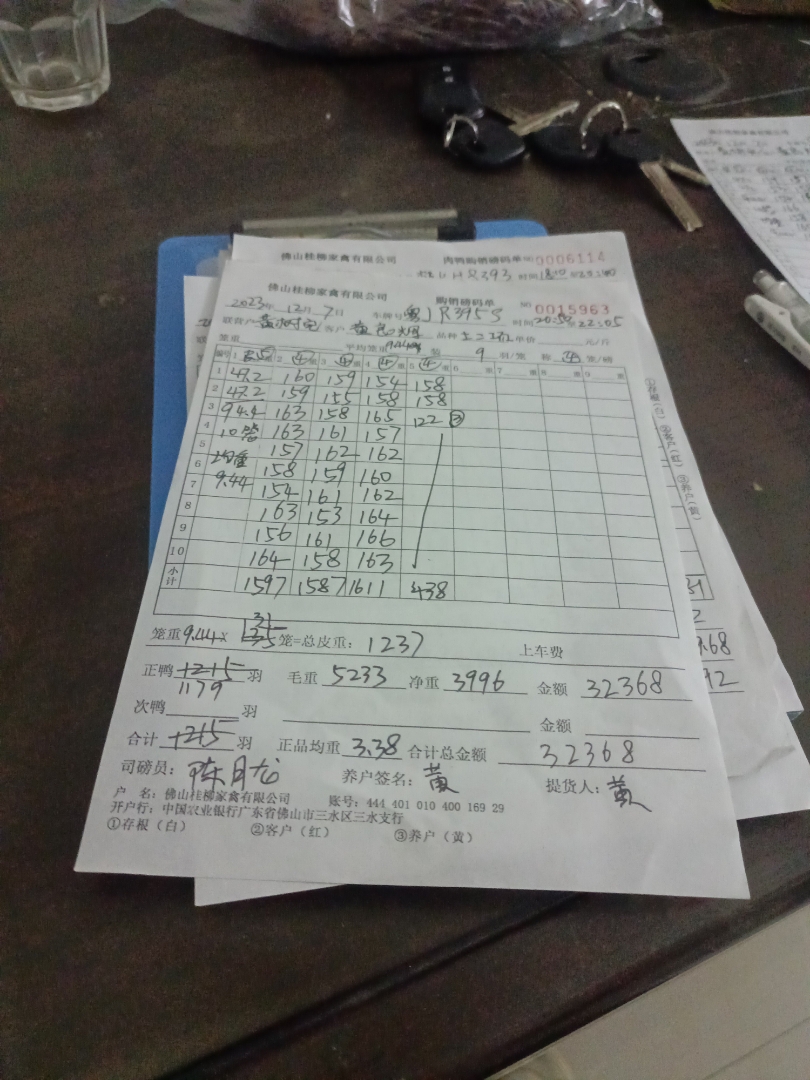 佛山桂柳家禽有限公司 肉鸭购销磅码单 NO 0006114
R393 时间
佛山桂柳家禽有限公司 购销磅码单 NO 0015963
2023年 12月 7日 车牌号 粤JR395S 时间 20:50 22:05
联营户 客户 品种 单价 元/斤
笼重 平均笼重 装 9 羽/笼 称 4 笼/磅
编号 1 重 2 ④ 重 3 ④ 重 4 ④ 重 5 ④ 重 6 重 7 重 8 重 9 重
1 47.2 160 159 154 158
2 47.2 159 155 158 158
3 94.4 163 158 165 122 ③
4 10 163 161 157
5 均重 157 162 162
6 9.44 158 159 160
7 154 161 162
8 163 153 164
9 156 161 166
10 164 158 163
小计 1597 1587 1611 438
笼重 9.44 × 131 笼=总皮重: 1237 上车费
正鸭 1215 1179 羽 毛重 5233 净重 3996 金额 32368
次鸭 羽 金额
合计 1215 羽 正品均重 3.38 合计总金额 32368
司磅员: 陈月龙 养户签名: 黄 提货人: 黄
户 名: 佛山桂柳家禽有限公司 账号: 444 401 010 400 169 29
开户行: 中国农业银行广东省佛山市三水区三水支行
①存根（白） ②客户（红） ③养户（黄）
①存根（白） ②客户（红） ③养户（黄）